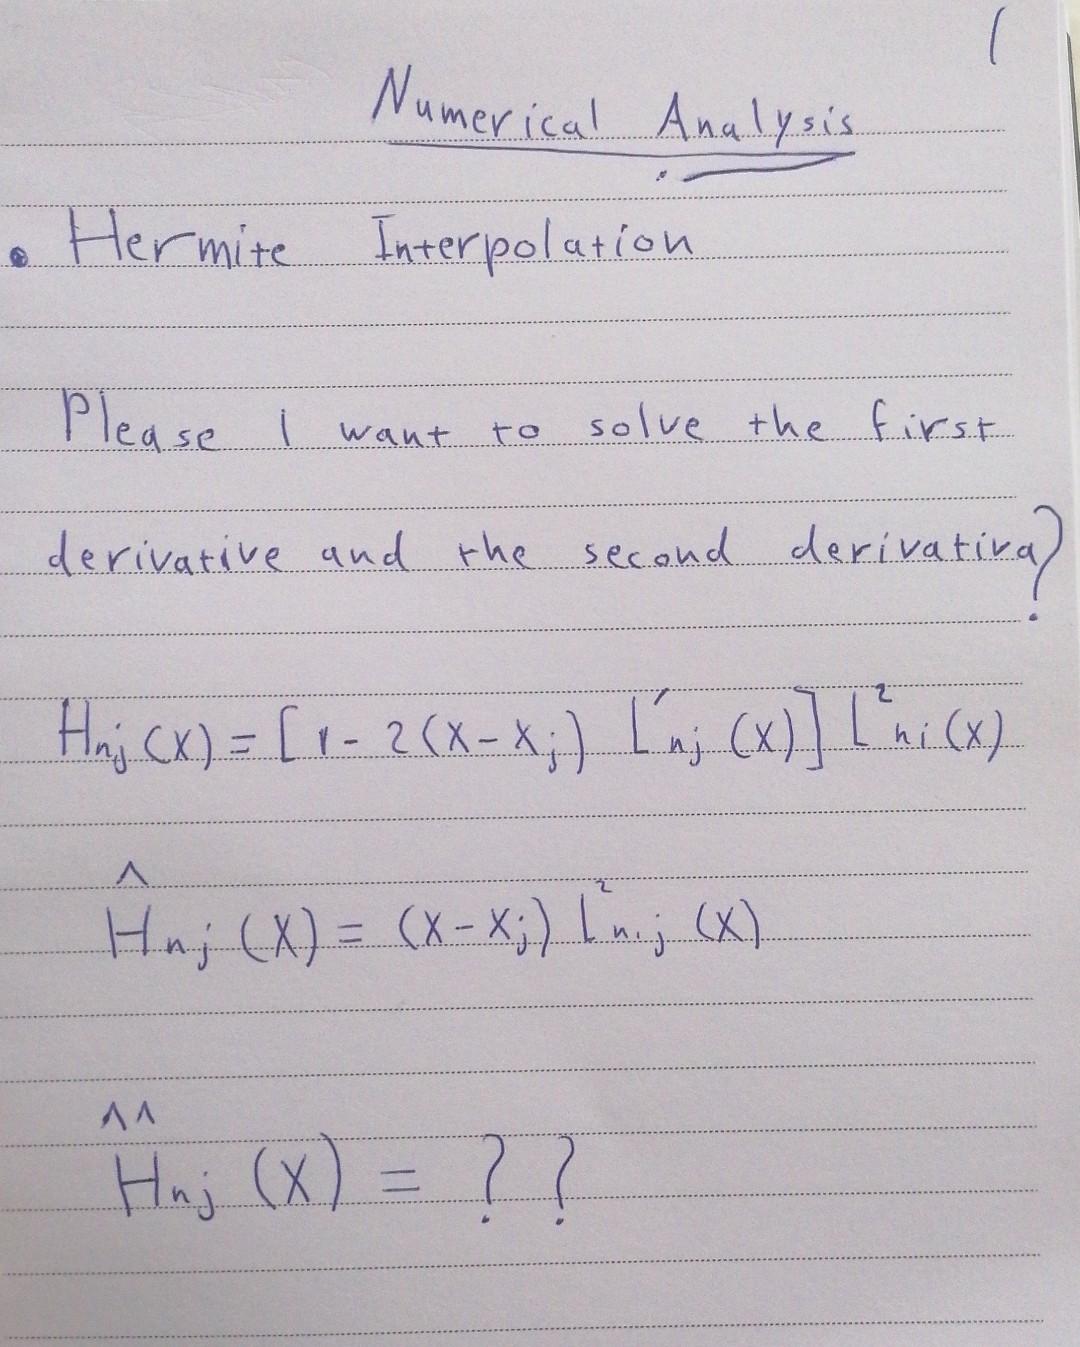 1
Numerical Analysis
• Hermite Interpolation
Please I want to solve the first
derivative and the second derivativa?
Hnj (X) = [1 - 2(X - Xj) L'nj (X)] L²ni (X)
^
Hnj (X) = (X - Xj) L²n.j (X)
^^
Hnj (X) = ? ?